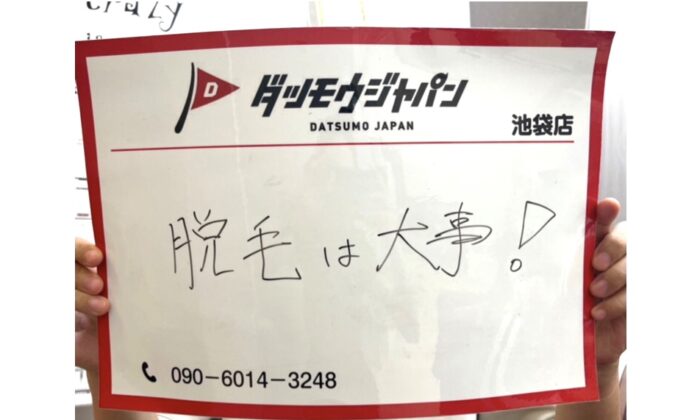 crazy
D
ダツモウジャパン
DATSUMO JAPAN
池袋店
脱毛は大事!
090-6014-3248